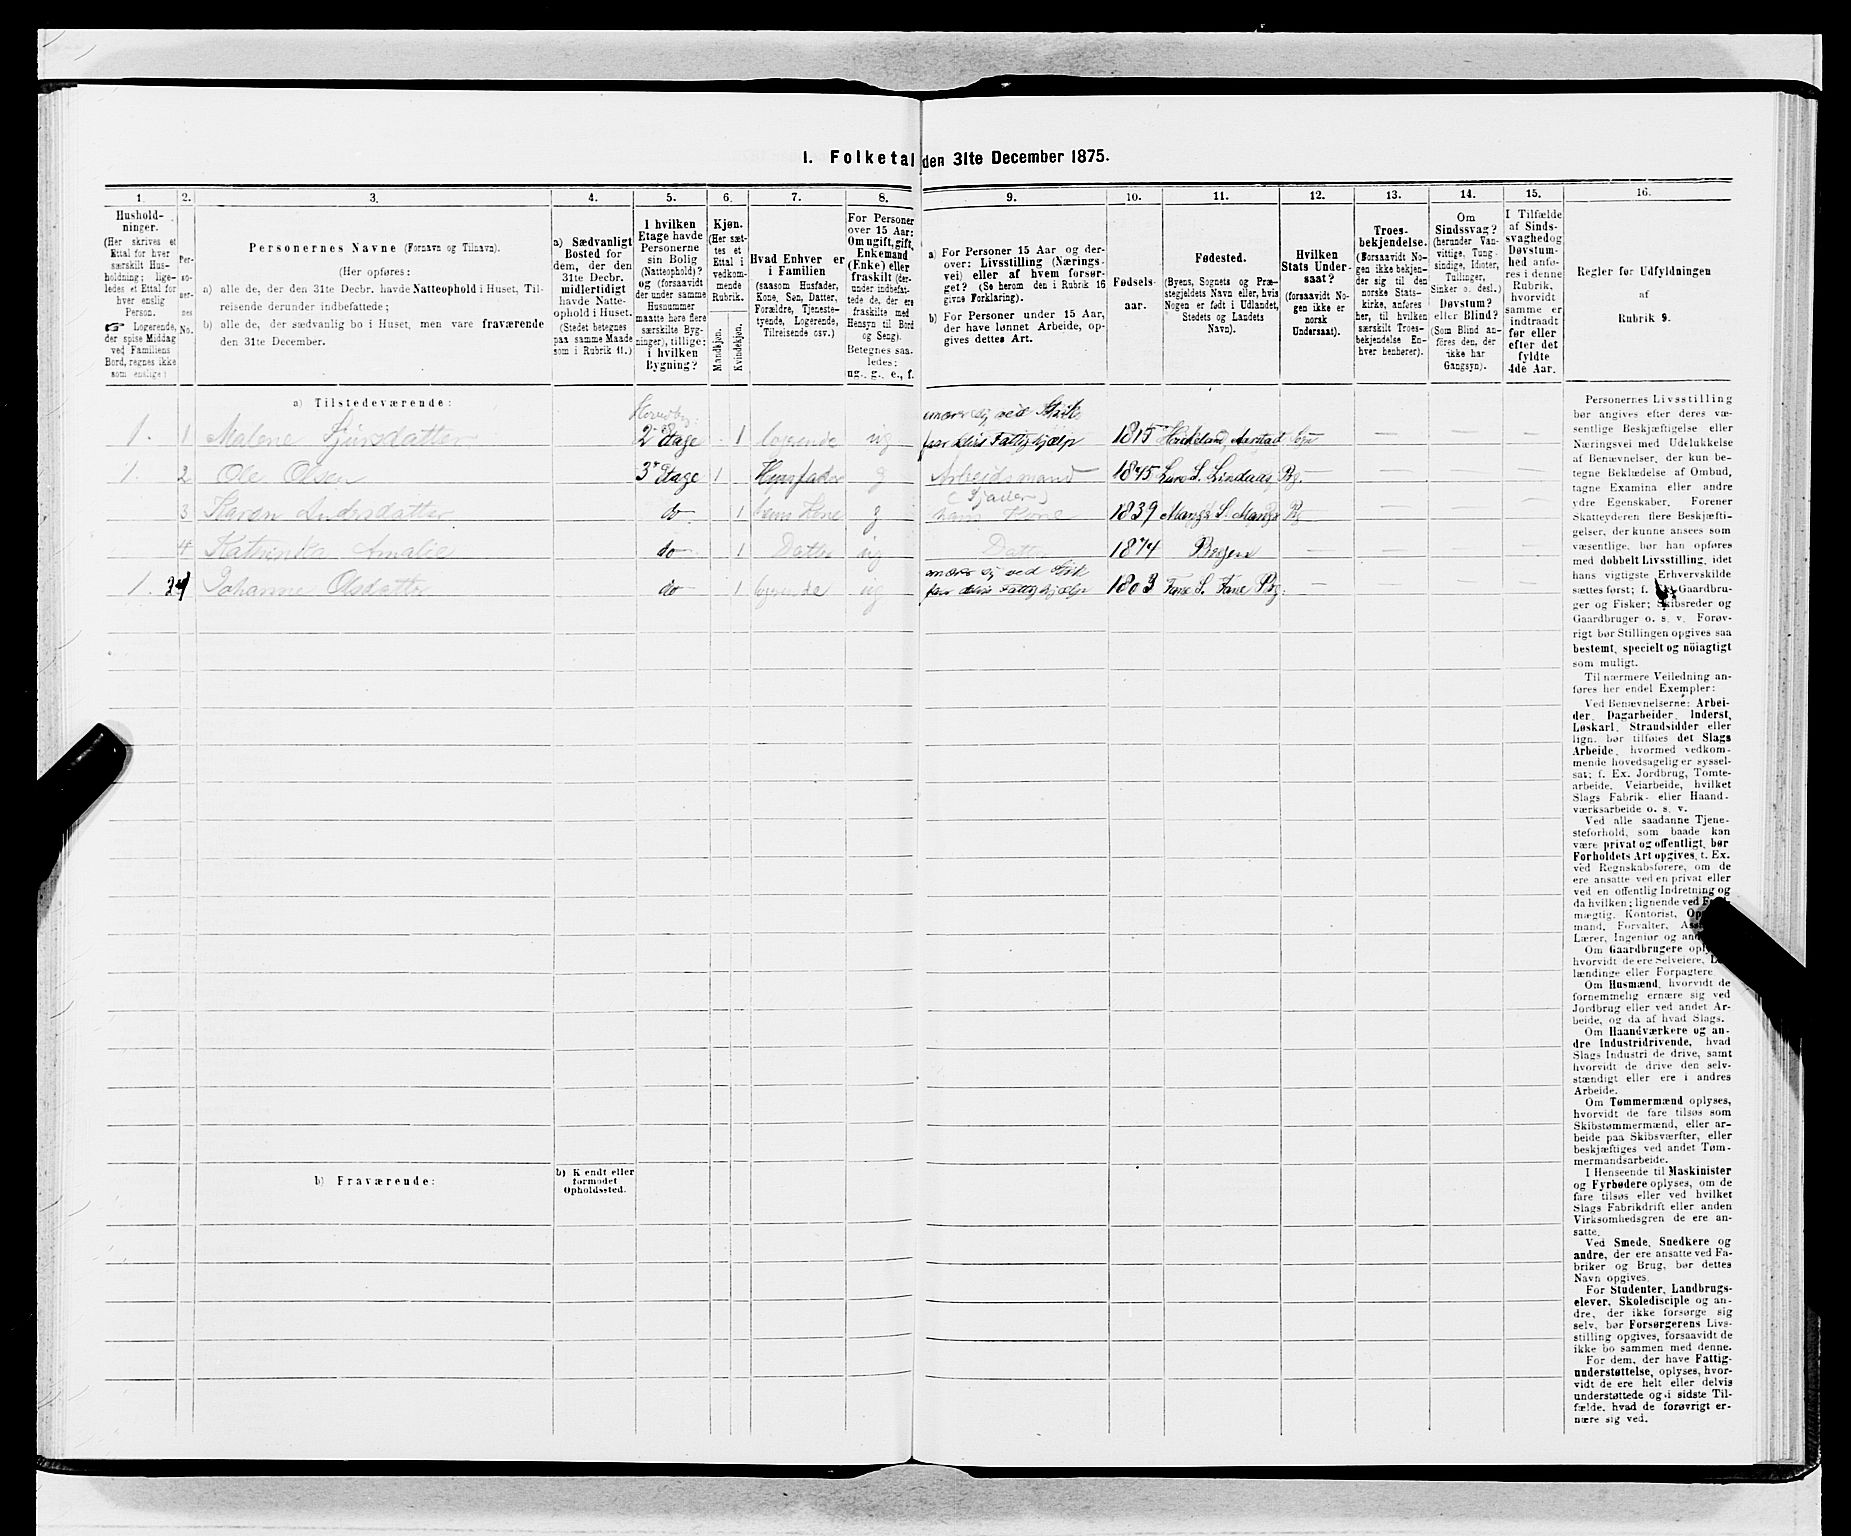 1. Folketal den 31te December 1875.
1.
Hushold-
ninger.
(Her skrives et
Ettal for hver
særskilt Hus-
holdning; lige-
ledes et Ettal for
hver enslig
Person.
☞ Logerende,
der spise Middag
ved Familiens
Bord, regnes ikke
som enslige.)
2.
Per-
so-
ner-
nes
No.
3.
Personernes Navne (Fornavn og Tilnavn).
(Her opføres:
a) alle de, der den 31te Decbr. havde Natteophold i Huset, Til-
reisende derunder indbefattede;
b) alle de, der sædvanlig bo i Huset, men vare fraværende
den 31te December.
4.
a) Sædvanligt
Bosted for
dem, der den
31te Decbr.
midlertidigt
havde Natte-
ophold i Huset.
(Stedet betegnes
paa samme Maade
som i Rubrik 11.)
5.
I hvilken
Etage havde
Personerne
sin Bolig
(Natteophold)?
og (forsaavidt
der under samme
Husnummer
maatte høre flere
særskilte Byg-
ninger), tillige:
i hvilken
Bygning?
6.
Kjøn.
(Her sæt-
tes et
Ettal i
vedkom-
mende
Rubrik.
Mandkjøn.
Kvindekjøn.
7.
Hvad Enhver er
i Familien
(saasom Husfader,
Kone, Søn, Datter,
Forældre, Tjeneste-
tyende, Logerende,
Tilreisende osv.)
8.
For Personer
over 15 Aar:
Om ugift, gift,
Enkemand
(Enke) eller
fraskilt (der-
under indbefat-
tede de, der ere
fraskilte med
Hensyn til Bord
og Seng).
Betegnes saa-
ledes:
ug., g., e., f.
9.
a) For Personer 15 Aar og der-
over: Livsstilling (Nærings-
vei) eller af hvem forsør-
get? (Se herom den i Rubrik 16
givne Forklaring).
b) For Personer under 15 Aar,
der have lønnet Arbeide, op-
gives dettes Art.
10.
Fødsels-
aar.
11.
Fødested.
(Byens, Sognets og Præ-
stegjeldets Navn eller, hvis
Nogen er født i Udlandet,
Stedets og Landets
Navn).
12.
Hvilken
Stats Under-
saat?
(forsaavidt No-
gen ikke er
norsk
Undersaat).
13.
Troes-
bekjendelse.
(Forsaavidt No-
gen ikke bekjen-
der sig til den
norske Stats-
kirke, anføres
her, til hvilken
særskilt Troes-
bekjendelse En-
hver henhører).
14.
Om
Sindssvag?
(herunder Van-
vittige, Tung-
sindige, Idioter,
Tullinger,
Sinker o. desl.)
Døvstum?
eller Blind?
(Som Blind an-
føres den, der
ikke har
Gangsyn).
15.
I Tilfælde
af Sinds-
svaghed og
Døvstum-
hed anfø-
res i denne
Rubrik,
hvorvidt
samme er
indtraadt
før eller
efter det
fyldte
4de Aar.
16.
Regler for Udfyldningen
af
Rubrik 9.
a) Tilstedeværende:
1. 1 Malene Sjursdatter Hovedby. 2 Etage 1 logerende ug ernærer sig ved Strik
har delvis Fattighjælp 1815 Haukeland, Aarstad Sogn — — — —
1. 2 Ole Olsen 3 Etage 1 Husfader g Arbeidsmand
(Sjauer) 1845 Lurø S. Lindaas Pg. — — — —
3 Karen Andersdatter do 1 hans Kone g hans Kone 1839 Manger S. Manger Pg — — — —
4 Katrinka Amalie do 1 Datter ug Datter 1874 Bergen — — — —
1. 5 Johanne Olsdatter do 1 logerende ug ernærer sig ved Strik
har delvis Fattighjælp 1803 Fane S. Fane Pg. — — — —
b) Fraværende:
b) Kjendt eller
formodet
Opholdssted.
Personernes Livsstilling
bør angives efter deres væ-
sentlige Beskjæftigelse eller
Næringsvei med Udelukkelse
af Benævnelser, der kun be-
tegne Beklædelse af Ombud,
tagne Examina eller andre
ydre Egenskaber. Forener
Skatteyderen flere Beskjæfti-
gelser, der kunne ansees som
væsentlige, bør han opføres
med dobbelt Livsstilling, idet
hans vigtigste Erhvervskilde
sættes først; f. Ex. Gaardbru-
ger og Fisker; Skibsreder og
Gaardbruger o. s. v. Forøv-
rigt bør Stillingen opgives saa
bestemt, specielt og nöiagtigt
som muligt.
Til nærmere Veiledning an-
føres her endel Exempler:
Ved Benævnelserne: Arbei-
der, Dagarbeider, Inderst,
Løskarl, Strandsidder eller
lign. bør tilføies det Slags
Arbeide, hvormed vedkom-
mende hovedsagelig er syssel-
sat; f. Ex. Jordbrug, Tomte-
arbeide, Veiarbeide, hvilket
Slags Fabrik- eller Haand-
værksarbeide o. s. v.
Ved alle saadanne Tjene-
steforhold, som baade kan
være privat og offentligt, bør
Forholdets Art opgives, t. Ex.
ved Regnskabsførere, om de
ere ansatte ved en privat eller
ved en offentlig Indretning og
da hvilken; lignende ved Fuld-
mægtig, Kontorist, Opsyns-
mand, Forvalter, Assistent,
Lærer, Ingeniør og andre.
Om Gaardbrugere oplyses,
hvorvidt de ere Selveiere, Lei-
lændinge eller Forpagtere.
Om Husmænd, hvorvidt de
fornemmelig ernære sig ved
Jordbrug eller ved andet Ar-
beide, og da af hvad Slags.
Om Haandværkere og an-
dre Industridrivende, hvad
Slags Industri de drive, samt
hvorvidt de drive den selv-
stændigt eller ere i andres
Arbeide.
Om Tømmermænd oplyses,
hvorvidt de fare tilsøs som
Skibstømmermænd, eller ar-
beide paa Skibsværfter, eller
beskjæftiges ved andet Tøm-
mermandsarbeide.
I Henseende til Maskinister
og Fyrbødere oplyses, om de
fare tilsøs eller ved hvilket
Slags Fabrikdrift eller anden
Virksomhedsgren de ere an-
satte.
Ved Smede, Snedkere og
andre, der ere ansatte ved Fa-
briker og Brug, bør dettes
Navn opgives.
For Studenter, Landbrugs-
elever, Skoledisciple og an-
dre, der ikke forsørge sig
selv, bør Forsørgerens Livs-
stilling opgives, forsaavidt de
ikke bo sammen med denne.
For dem, der have Fattig-
understøttelse, oplyses, hvor-
vidt de ere helt eller delvis
understøttede og i sidste Til-
fælde, hvad de forøvrigt er-
nære sig ved.